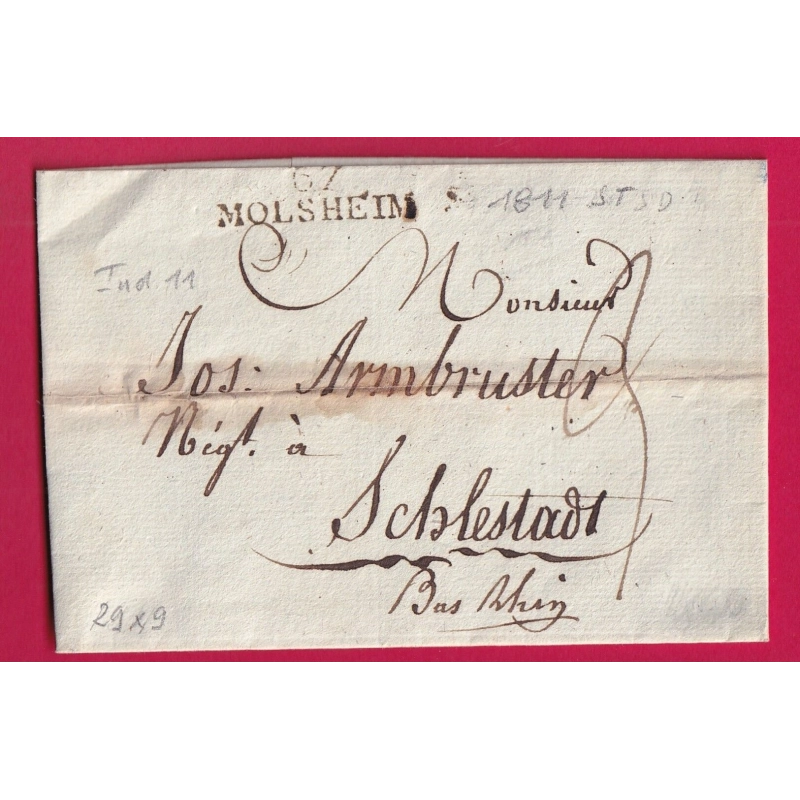 67
MOLSHEIM
1811
Ind 11
Monsieur
Jos: Armbruster
Négt. à
Schlestadt
Bas Rhin
3
29x9